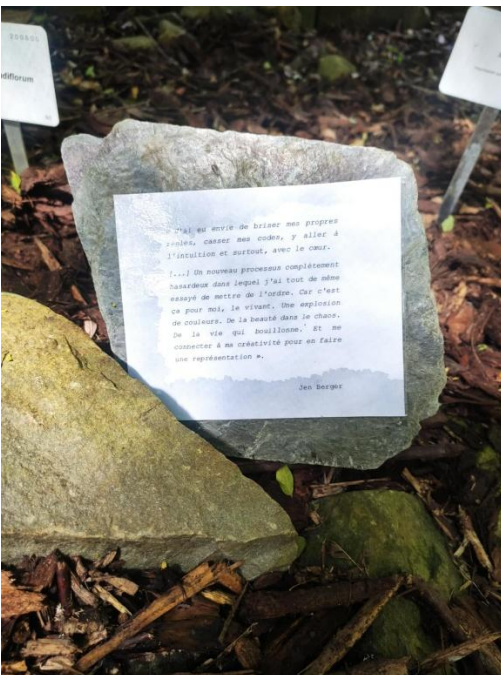 309600
diflorum
« J'ai eu envie de briser mes propres
règles, casser mes codes, y aller à
l'intuition et surtout, avec le cœur.
[...] Un nouveau processus complètement
hasardeux dans lequel j'ai tout de même
essayé de mettre de l'ordre. Car c'est
ça pour moi, le vivant. Une explosion
de couleurs. De la beauté dans le chaos.
De la vie qui bouillonne. Et me
connecter à ma créativité pour en faire
une représentation ».
Jen Barger